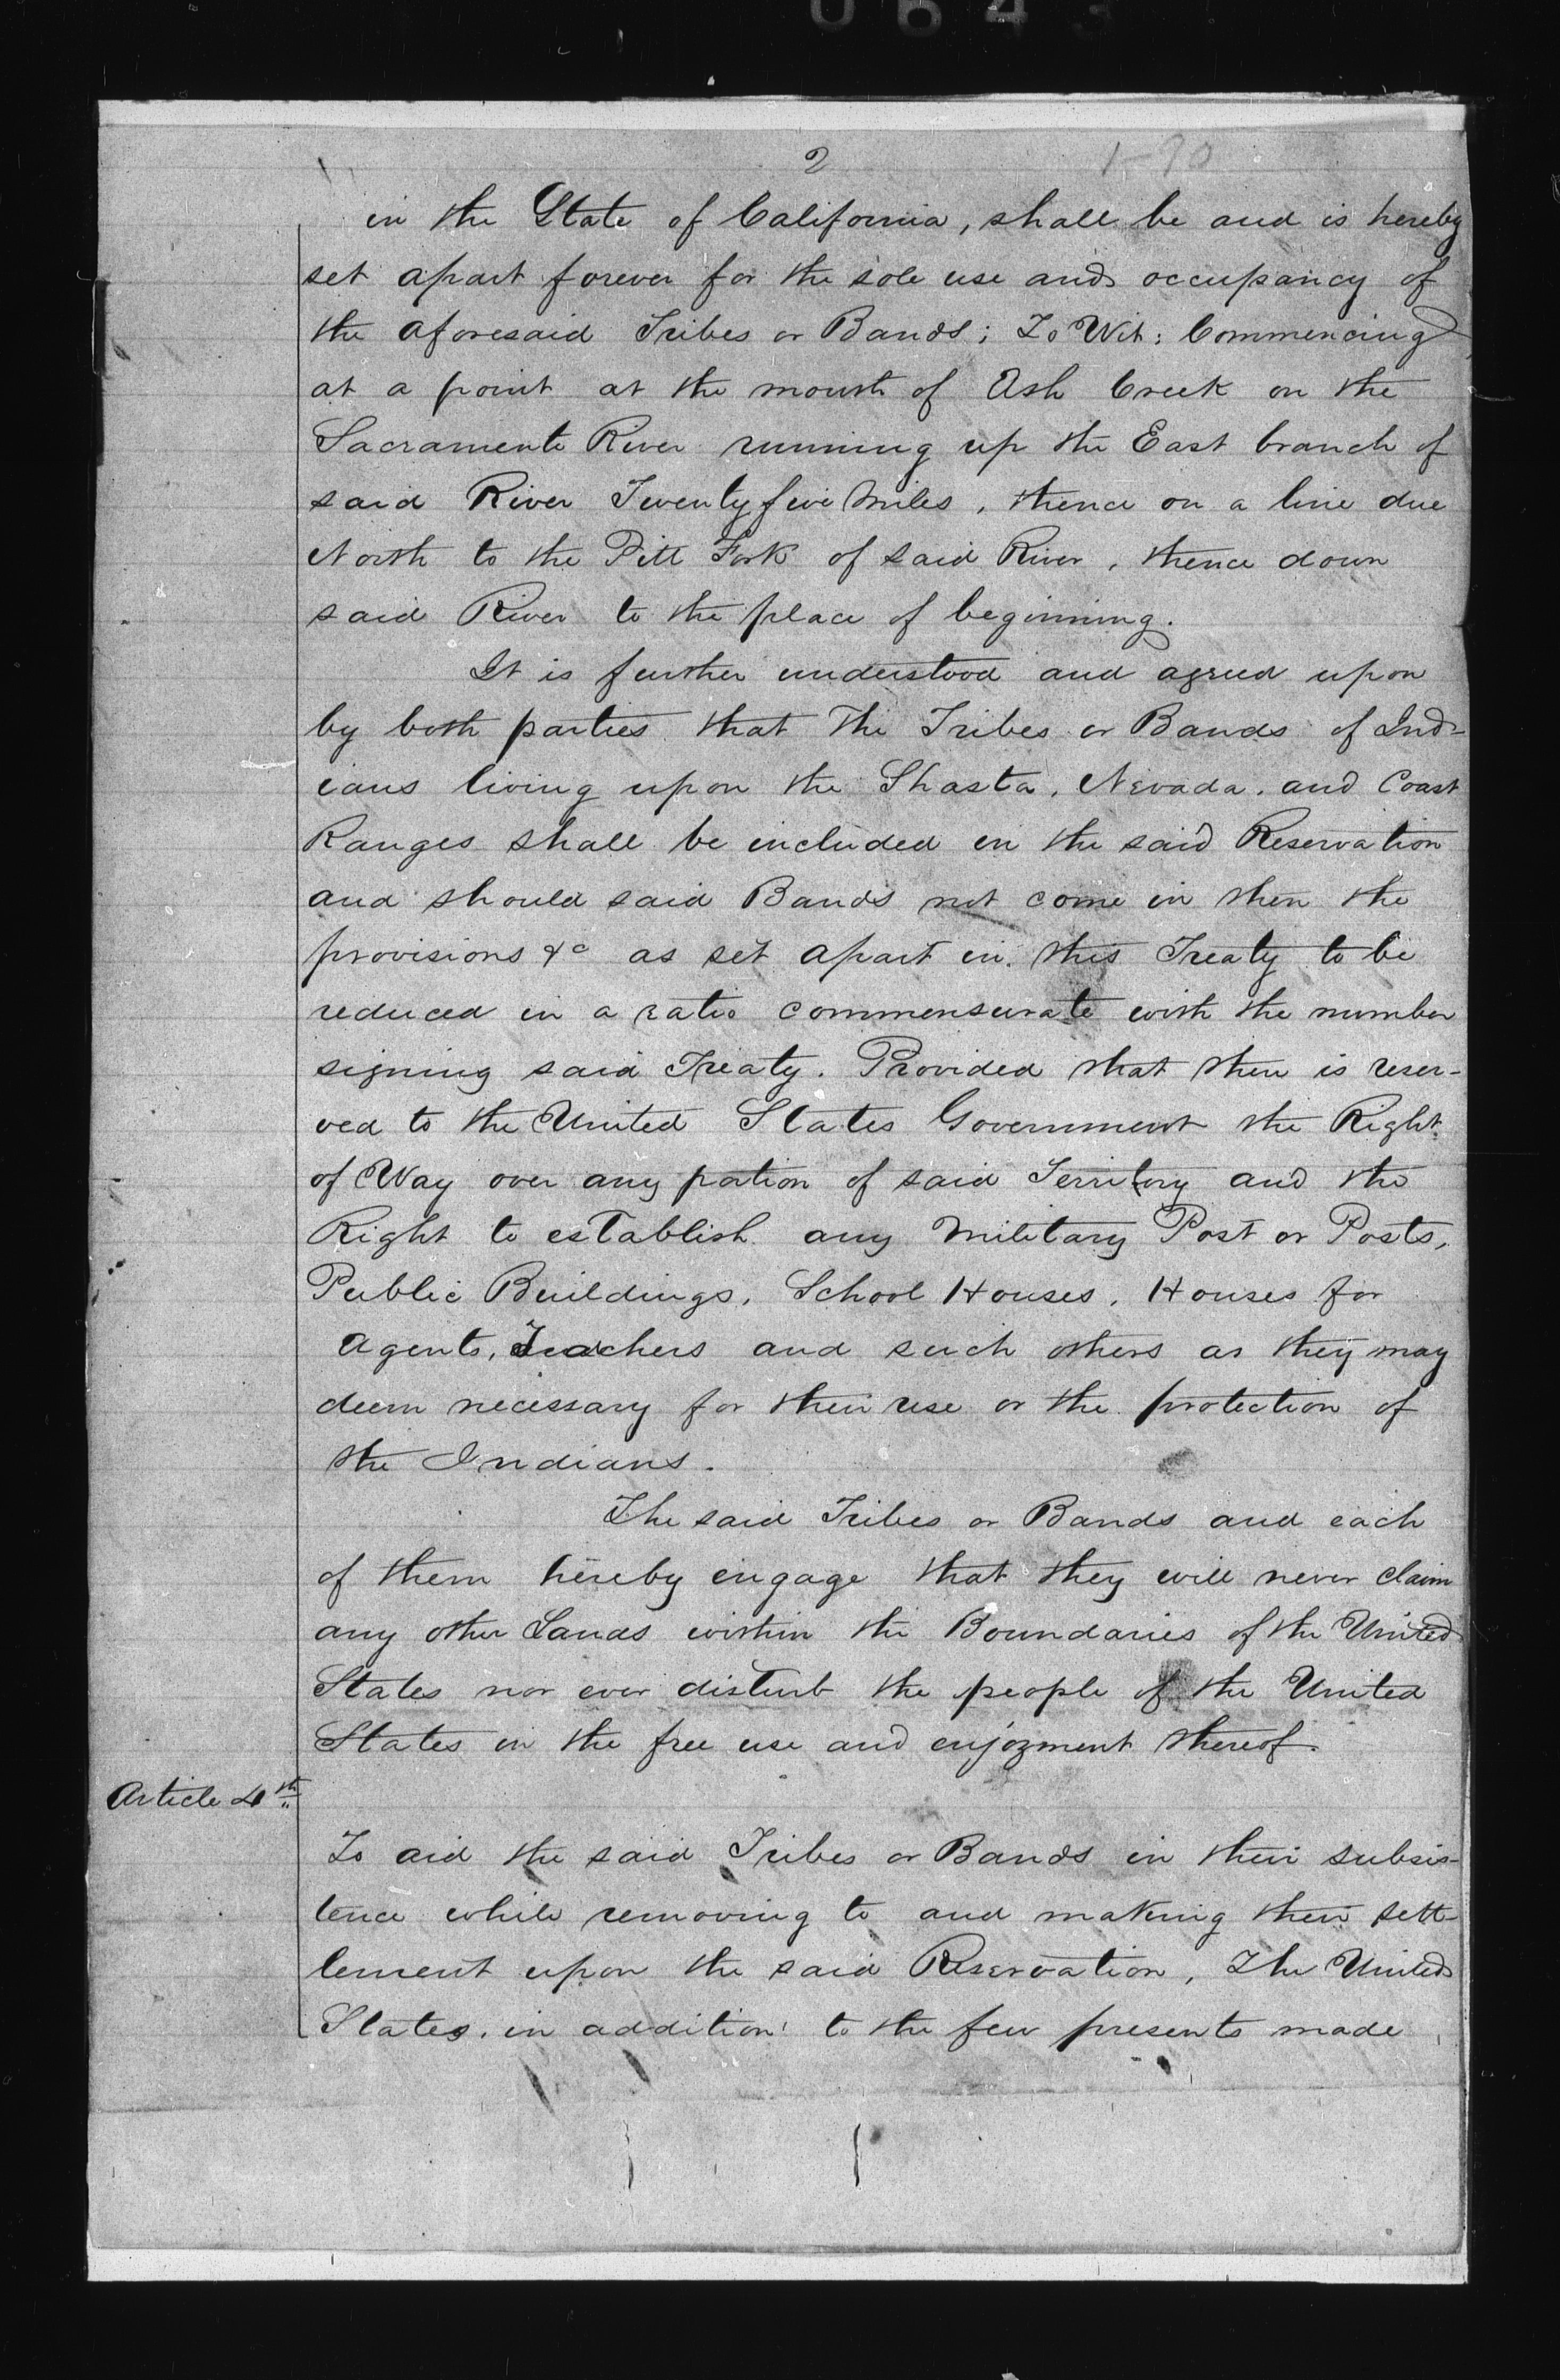 0643
2
1-90
in the State of California, shall be and is hereby
set apart forever for the sole use and occupancy of
the aforesaid Tribes or Bands; To Wit: Commencing
at a point at the mouth of Ash Creek on the
Sacramento River running up the East branch of
said River Twenty five Miles, thence on a line due
North to the Pitt Fork of said River, thence down
said River to the place of beginning.
It is further understood and agreed upon
by both parties that the Tribes or Bands of Ind-
ians living upon the Shasta, Nevada, and Coast
Ranges shall be included in the said Reservation
and should said Bands not come in then the
provisions &c as set apart in this Treaty to be
reduced in a ratio commensurate with the number
signing said Treaty. Provided that there is reser-
ved to the United States Government the Right
of Way over any portion of said Territory and the
Right to establish any Military Post or Posts,
Public Buildings, School Houses, Houses for
Agents, Teachers and such others as they may
deem necessary for their use or the protection of
the Indians.
The said Tribes or Bands and each
of them hereby engage that they will never claim
any other Lands within the Boundaries of the United
States nor ever disturb the people of the United
States in the free use and enjoyment thereof.
Article 4th
To aid the said Tribes or Bands in their subsis-
tence while removing to and making their sett-
lement upon the said Reservation, The United
States, in addition to the few presents made